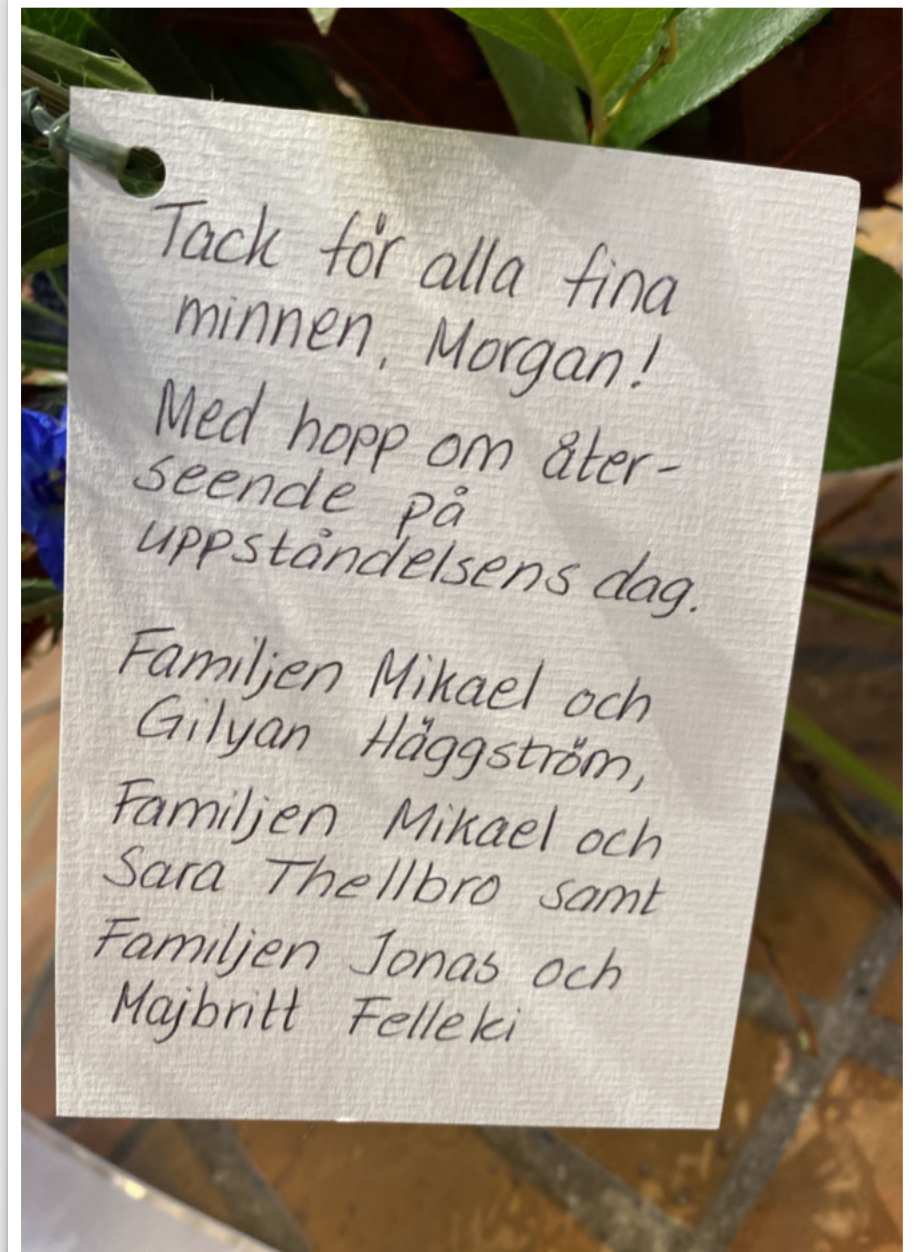 Tack för alla fina
minnen, Morgan!
Med hopp om åter-
seende på
uppståndelsens dag.
Familjen Mikael och
Gilyan Häggström,
Familjen Mikael och
Sara Thellbro samt
Familjen Jonas och
Majbritt Felleki